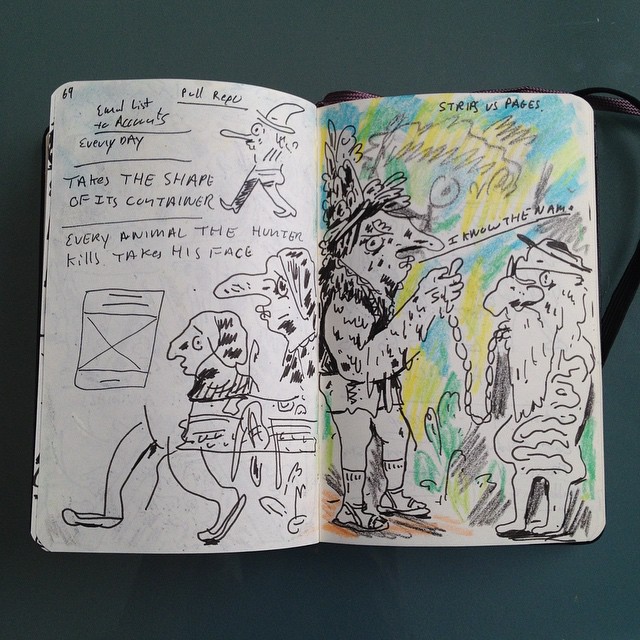 69
Pull Repo
Email List
to Accounts
Every DAY
TAKES THE SHAPE
OF ITS CONTAINER
EVERY ANIMAL THE HUNTER
Kills TAKES HIS FACE
STRIPS VS PAGES.
I KNOW THE NAME